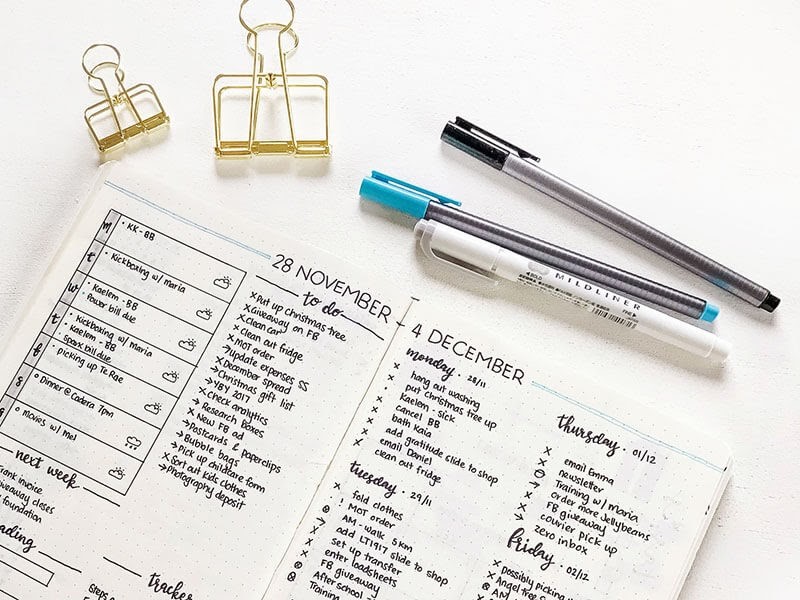 MILDLINER
28 NOVEMBER - 4 DECEMBER
m · KK - BB
t · Kickboxing w/ maria
w · Kaelem - BB
· Power bill due
t · Kickboxing w/ Maria
· Kaelem - BB
· Spark bill due
f · picking up Te Rae
s o Dinner @ Cadera 7pm
s o movies w/ Mel
next week
invoice
giveaway closes
foundation
tracker
to do
x Put up christmas tree
x Giveaway on FB
x clean car
x clean out fridge
x MOT order
→ update expenses SS
x December spread
→ Christmas gift list
→ YBY 2017
x Check analytics
→ Research Boxes
x New FB ad
→ Postcards & paperclips
→ Bubble bags
→ Pick up childcare form
x Sort out kids clothes
→ Photography deposit
monday · 28/11
x hang out washing
x put christmas tree up
x Kaelem - sick
x cancel BB
x bath Kaia
x add gratitude slide to shop
x email Daniel
x clean out fridge
tuesday · 29/11
x fold clothes
MOT order
AM - walk 5km
add LT1917 slide to shop
set up transfer
enter loadsheets
FB giveaway
After school
Training
thursday · 01/12
x email Emma
x newsletter
Training w/ maria
→ order more Jellybeans
x FB giveaway
→ courier pick up
x zero inbox
friday · 02/12
x Possibly picking
x Angel Tree
AM